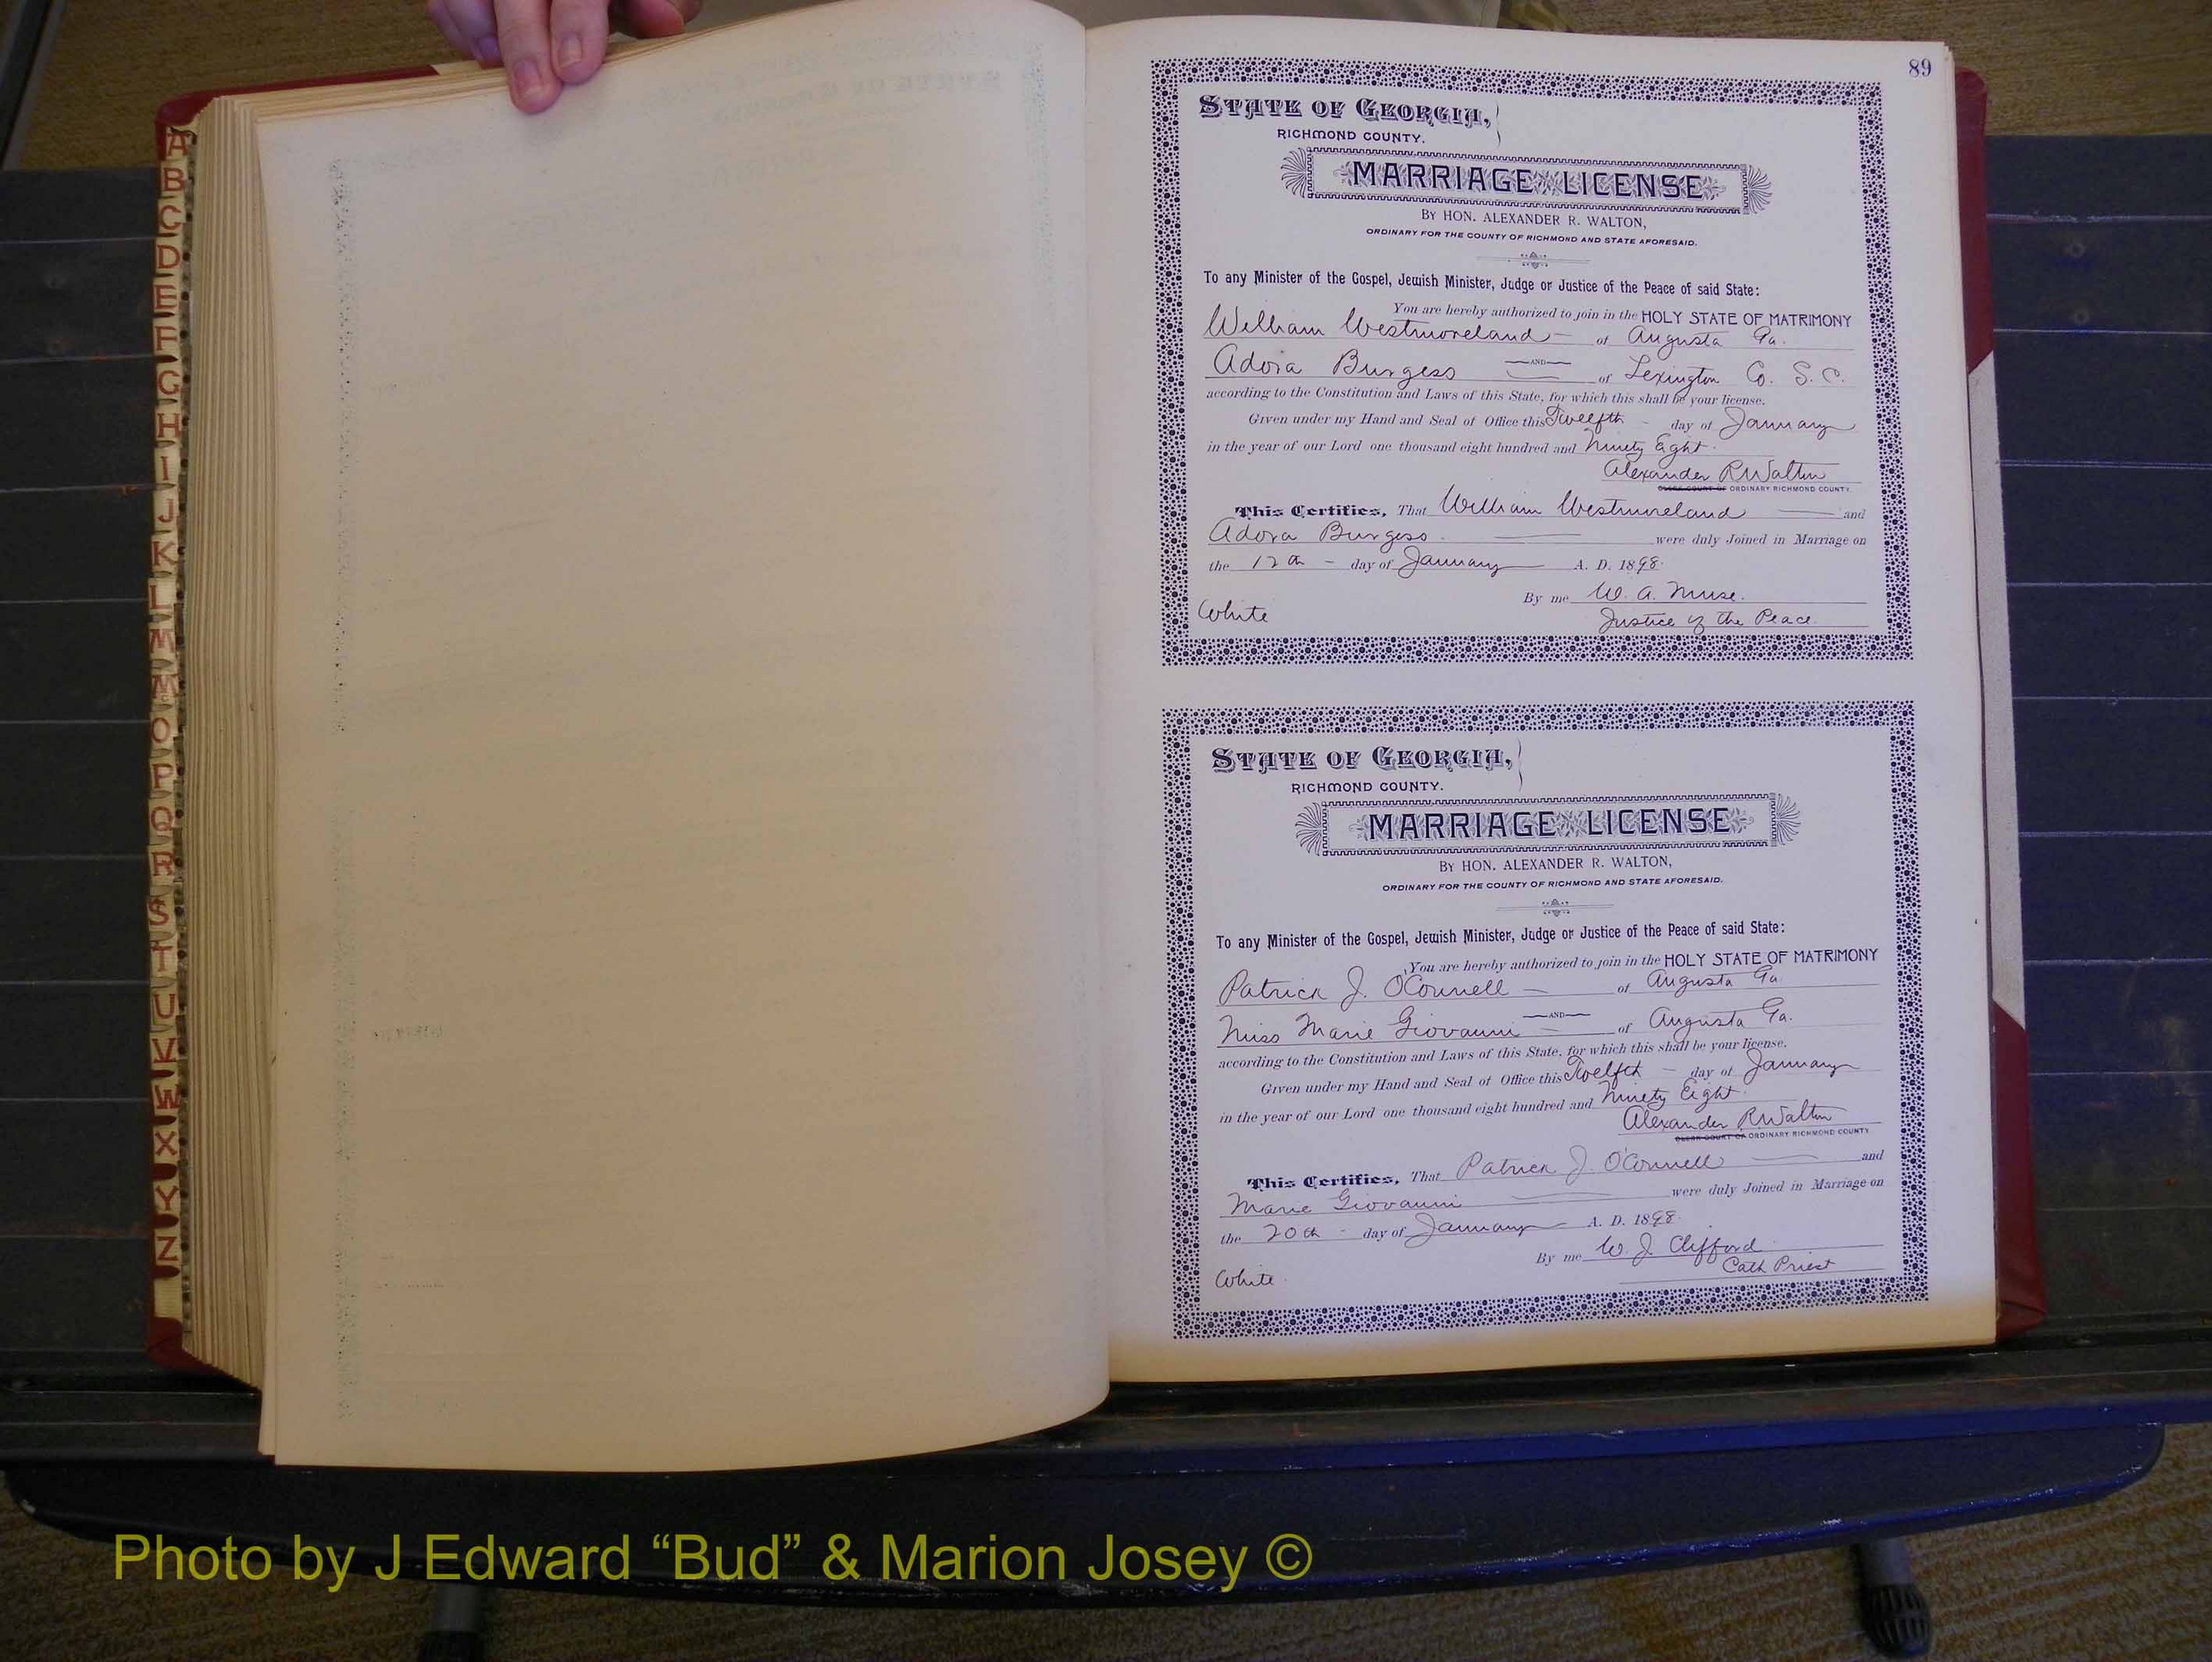 A
B
C
D
E
F
G
H
I
J
K
L
M
Mc
O
P
Q
R
S
T
U
V
W
X
Y
Z
89
STATE OF GEORGIA,
RICHMOND COUNTY.
MARRIAGE LICENSE
BY HON. ALEXANDER R. WALTON,
ORDINARY FOR THE COUNTY OF RICHMOND AND STATE AFORESAID.
To any Minister of the Gospel, Jewish Minister, Judge or Justice of the Peace of said State:
You are hereby authorized to join in the HOLY STATE OF MATRIMONY
William Westmoreland of Augusta Ga.
AND
Adora Burgess of Lexington Co. S. C.
according to the Constitution and Laws of this State, for which this shall be your license.
Given under my Hand and Seal of Office this Twelfth day of January
in the year of our Lord one thousand eight hundred and Ninety Eight.
Alexander R Walton
CLERK COURT OF ORDINARY RICHMOND COUNTY.
This Certifies, That William Westmoreland and
Adora Burgess were duly Joined in Marriage on
the 12th day of January A. D. 1898.
By me W. A. Muse.
White Justice of the Peace
STATE OF GEORGIA,
RICHMOND COUNTY.
MARRIAGE LICENSE
BY HON. ALEXANDER R. WALTON,
ORDINARY FOR THE COUNTY OF RICHMOND AND STATE AFORESAID.
To any Minister of the Gospel, Jewish Minister, Judge or Justice of the Peace of said State:
You are hereby authorized to join in the HOLY STATE OF MATRIMONY
Patrick J. O'Connell of Augusta Ga.
AND
Miss Marie Giovanni of Augusta Ga.
according to the Constitution and Laws of this State, for which this shall be your license.
Given under my Hand and Seal of Office this Twelfth day of January
in the year of our Lord one thousand eight hundred and Ninety Eight.
Alexander R Walton
CLERK COURT OF ORDINARY RICHMOND COUNTY
This Certifies, That Patrick J. O'Connell and
Marie Giovanni were duly Joined in Marriage on
the 20th day of January A. D. 1898.
By me W. J. Clifford
Cath Priest
White
Photo by J Edward “Bud” & Marion Josey ©